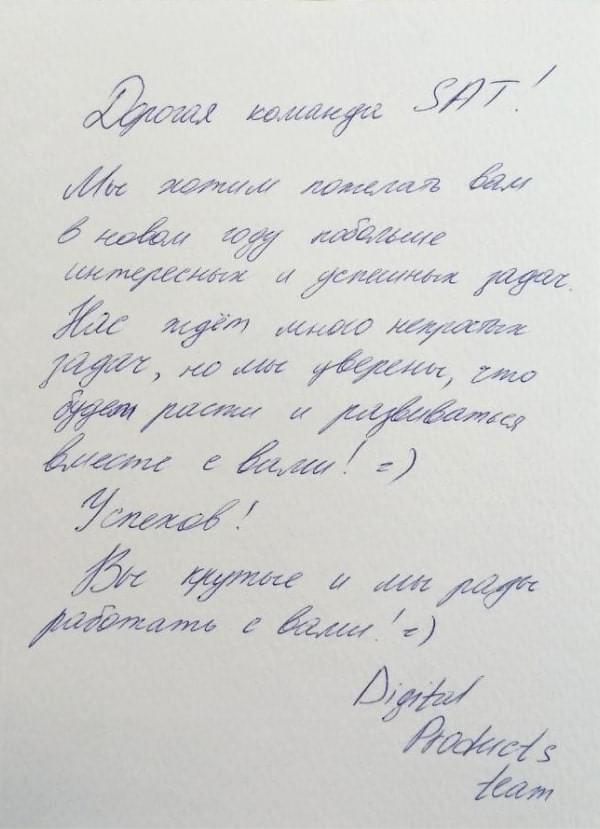 Дорогая команда SAT!
Мы хотим пожелать вам
в новом году побольше
интересных и успешных задач.
Нас ждёт много непростых
задач, но мы уверены, что
будем расти и развиваться
вместе с вами! =)
Успехов!
Вы крутые и мы рады
работать с вами! =)
Digital
Products
team